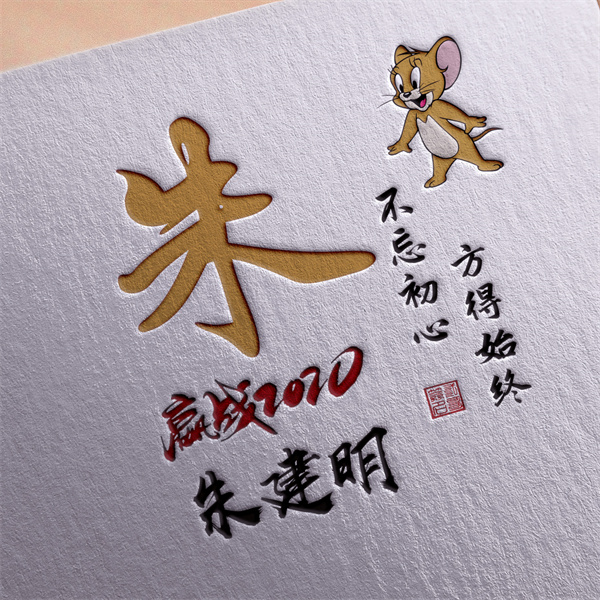 朱
不忘初心
方得始终
赢战2020
朱建明